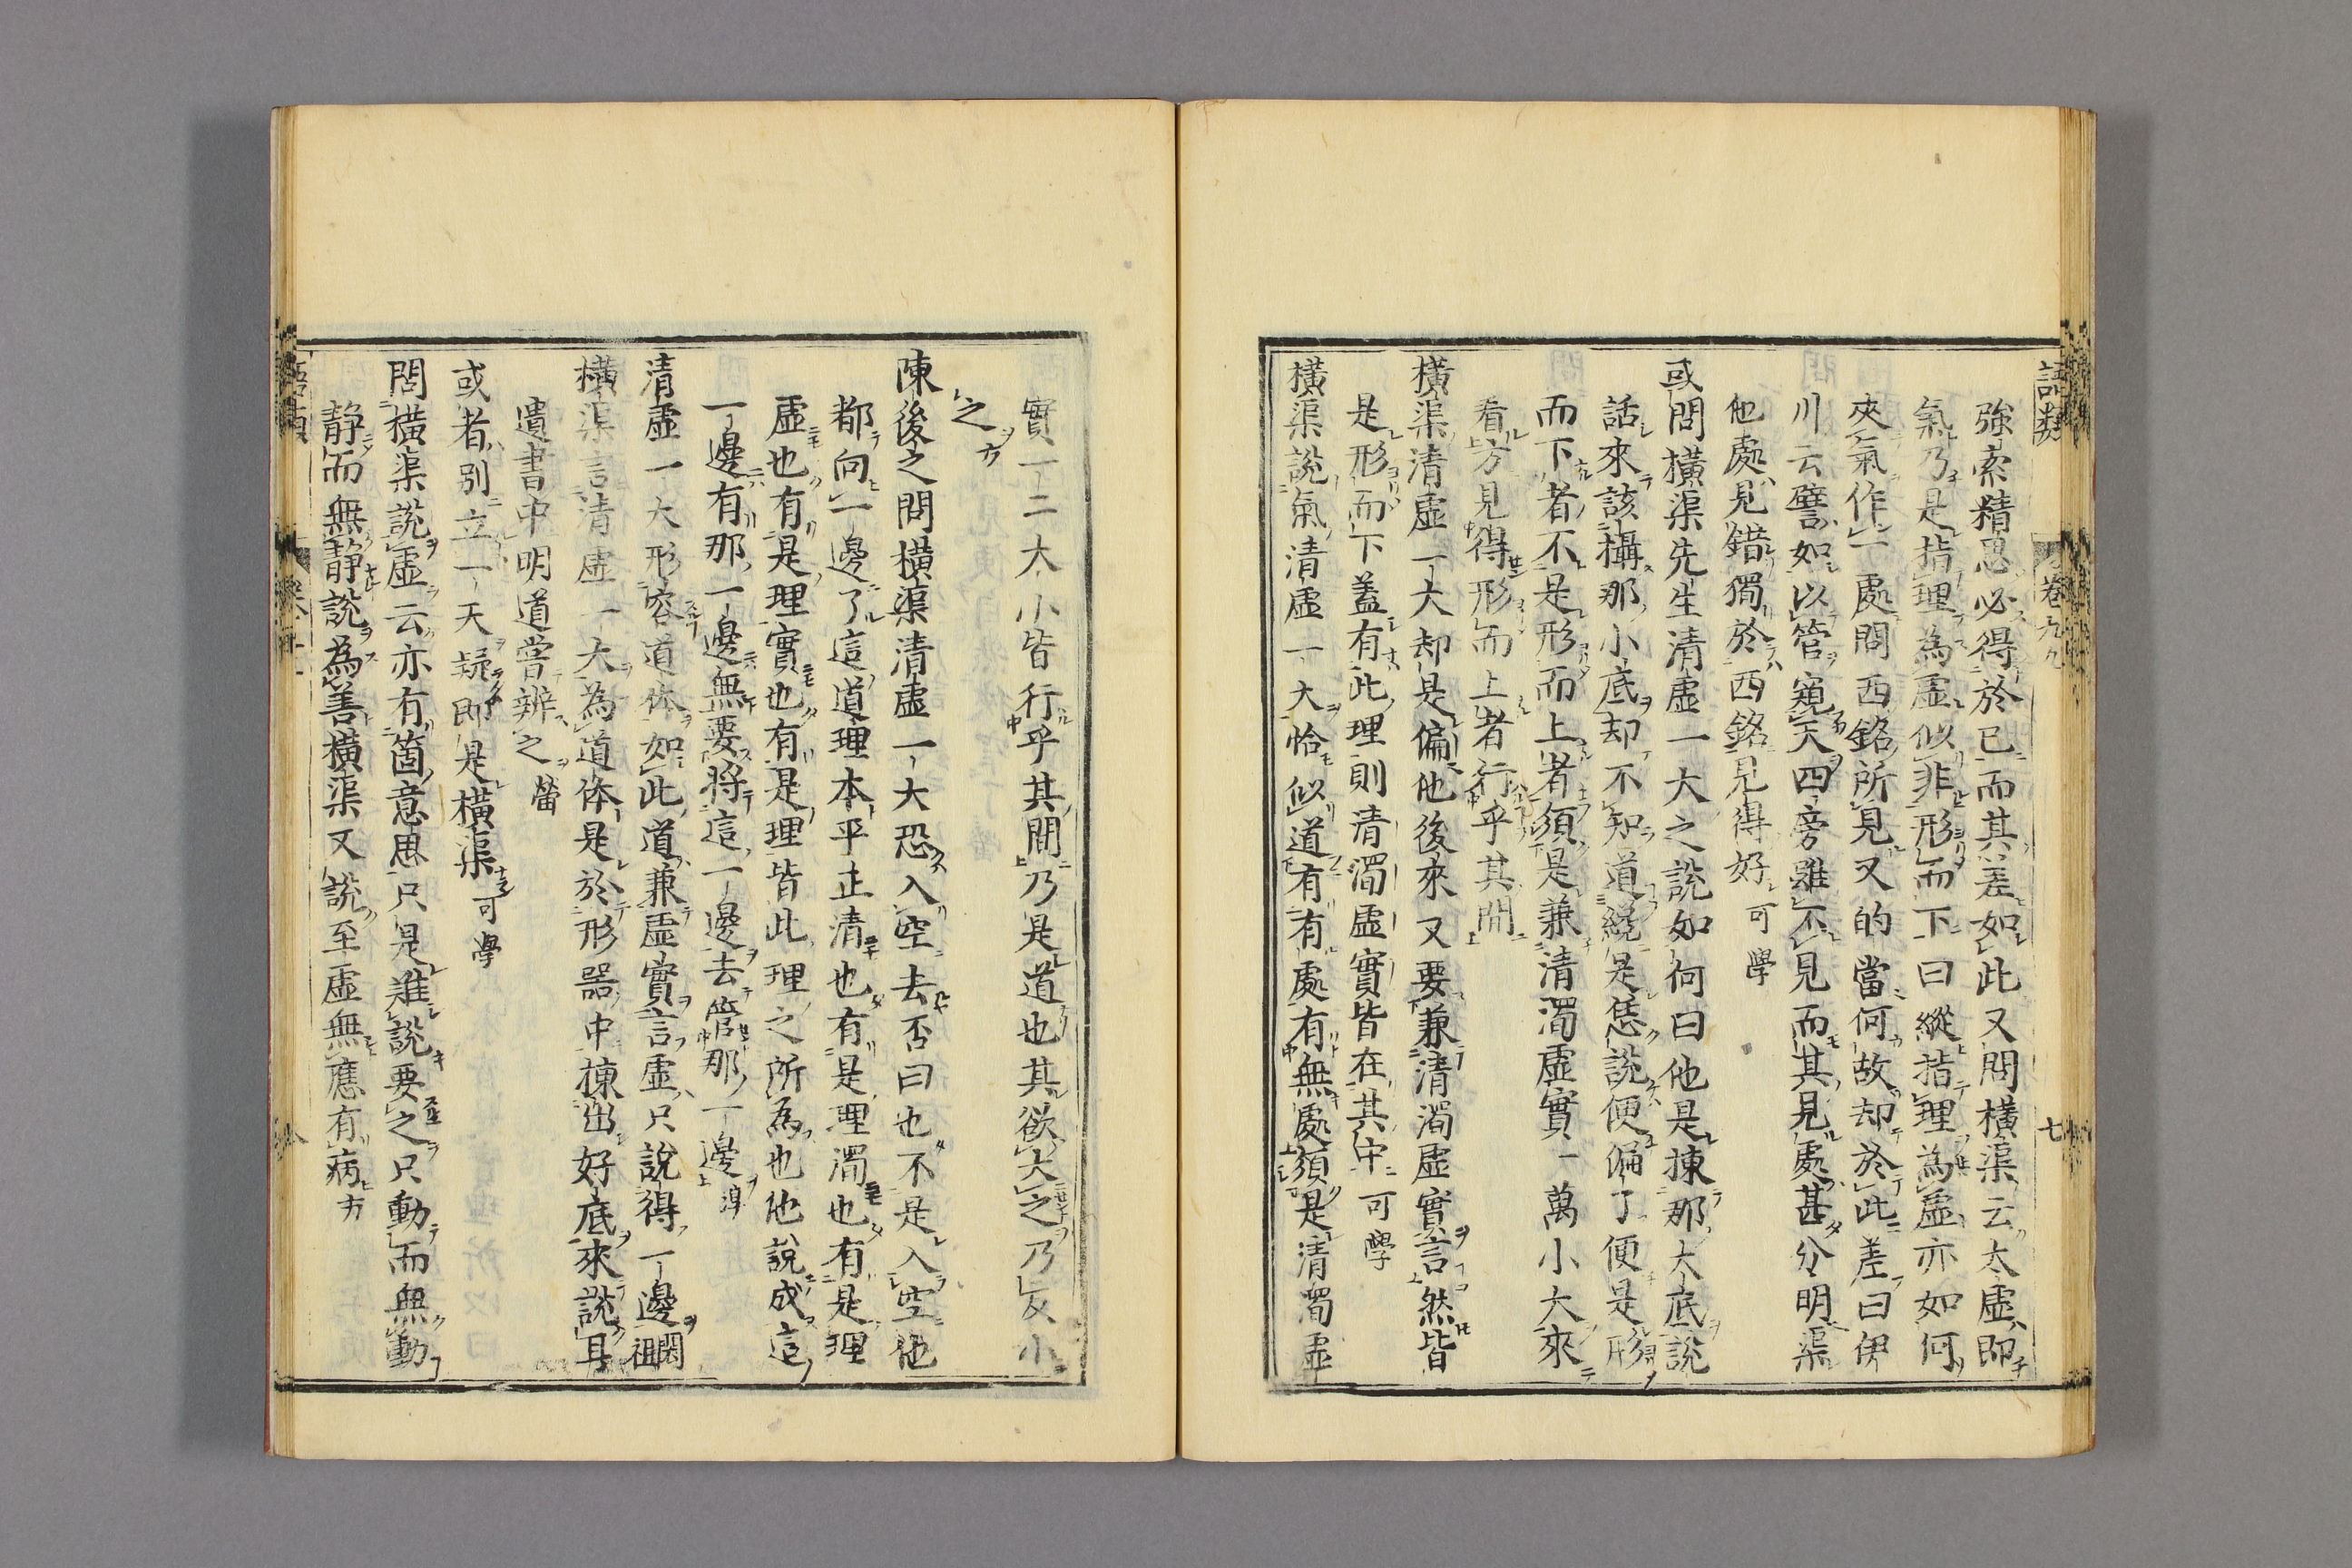 語類 卷九九 七
強索精思必得於已而其差如此又問橫渠云太虛即
氣乃是指理為虛似非形而下曰縱指理為虛亦如何
夾氣作一處問西銘所見又的當何故却於此差曰伊
川云譬如以管窺天四旁雖不見而其見處甚分明渠
他處見錯獨於西銘見得好可學
或問橫渠先生清虛一大之說如何曰他是揀那大底說
話來該攝那小底却不知道纔是恁說便偏了便是形
而下者不是形而上者須是兼清濁虛實一萬小大來
看方見得形而上者行乎其間
橫渠清虛一大却是偏他後來又要兼清濁虛實言然皆
是形而下蓋有此理則清濁虛實皆在其中可學
橫渠說氣清虛一大恰似道有有處有無處須是清濁虛
實一二大小皆行乎其間乃是道也其欲大之乃反小
之方
陳後之問橫渠清虛一大恐入空去否曰也不是入空他
都向一邊了這道理本平正清也有是理濁也有是理
虛也有是理實也有是理皆此理之所為也他說成這
一邊有那一邊無要將這一邊去管那一邊淳
清虛一大形容道体如此道兼虛實言虛只說得一邊閎祖
橫渠言清虛一大為道体是於形器中揀出好底來說耳
遺書中明道嘗辨之㽦
或者別立一天疑即是橫渠可學
問橫渠說虛云亦有箇意思只是難說要之只動而無動
静而無静說為善橫渠又說至虛無應有病方